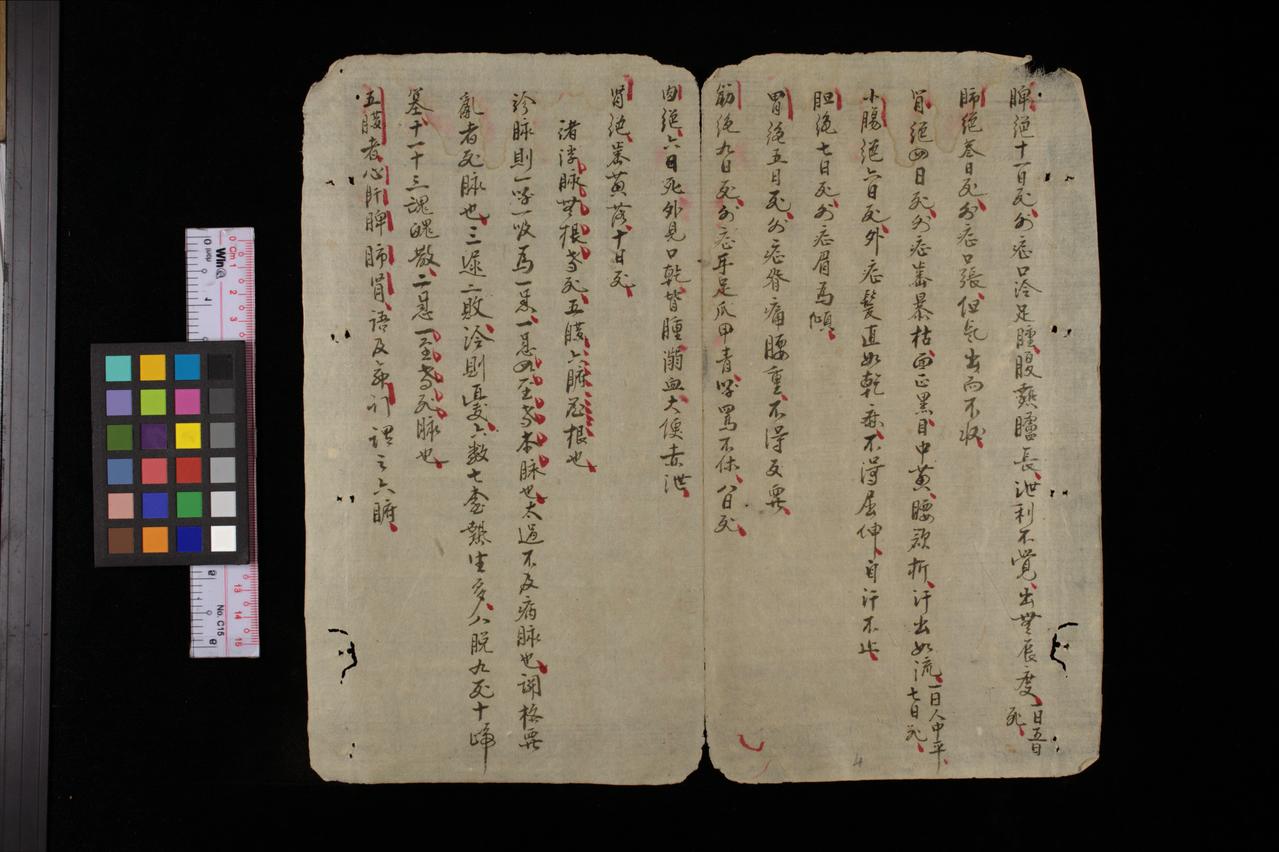 脾絶十二日死外症口冷足腫腹熱臚長泄利不覚出無辰度一曰五日死
肺絶叁日死外症口張但气出而不収
腎絶四日死外症齒暴枯面正黒目中黄腰欲折汗出如流一曰人中平七日死
小腸絶六日死外症髮直如乾麻不得屈伸自汗不止
胆絶七日死外症眉為傾
胃絶五日死外症脊痛腰重不得反要
筋絶九日死外症手足爪甲青呼罵不休八日死
肉絶六日死外見口乾皆腫溺血大便赤泄
腎絶齒黄落十日死
渚浮脉無根者死五臓六腑為根也
診脉則一呼一吸為一息一息四至者本脉也太過不及病脉也調格要
亂者死脉也三遅二敗冷則憂六数七壺熱生多八脱九死十歸
墓十一十三魂魄散二息一至者死脉也
五臓者心肝脾肺腎語及命門謂之六腑
4
Cm 1 2 3 13 14 15
No. C15